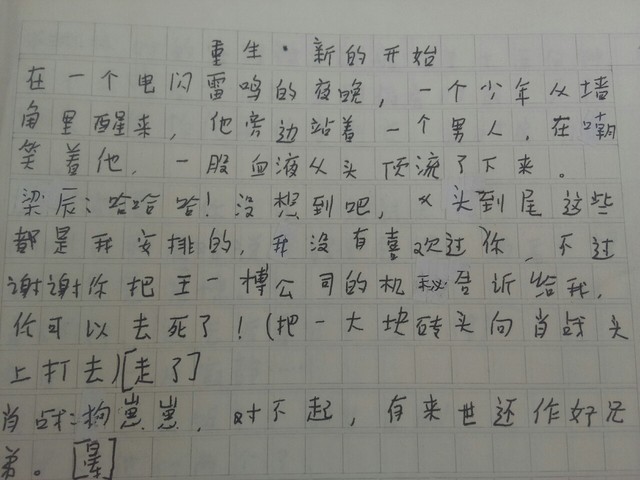 重生·新的开始
在一个电闪雷鸣的夜晚，一个少年从墙
角里醒来，他旁边站着一个男人，在嘲
笑着他，一股血液从头顶流了下来。
梁辰：哈哈哈！没想到吧，从头到尾这些
都是我安排的，我没有喜欢过你，不过
谢谢你把王一博公司的机秘告诉给我，
你可以去死了！(把一大块砖头向肖战头
上打去)[走了]
肖战：狗崽崽，对不起，有来世还作好兄
弟。[晕]